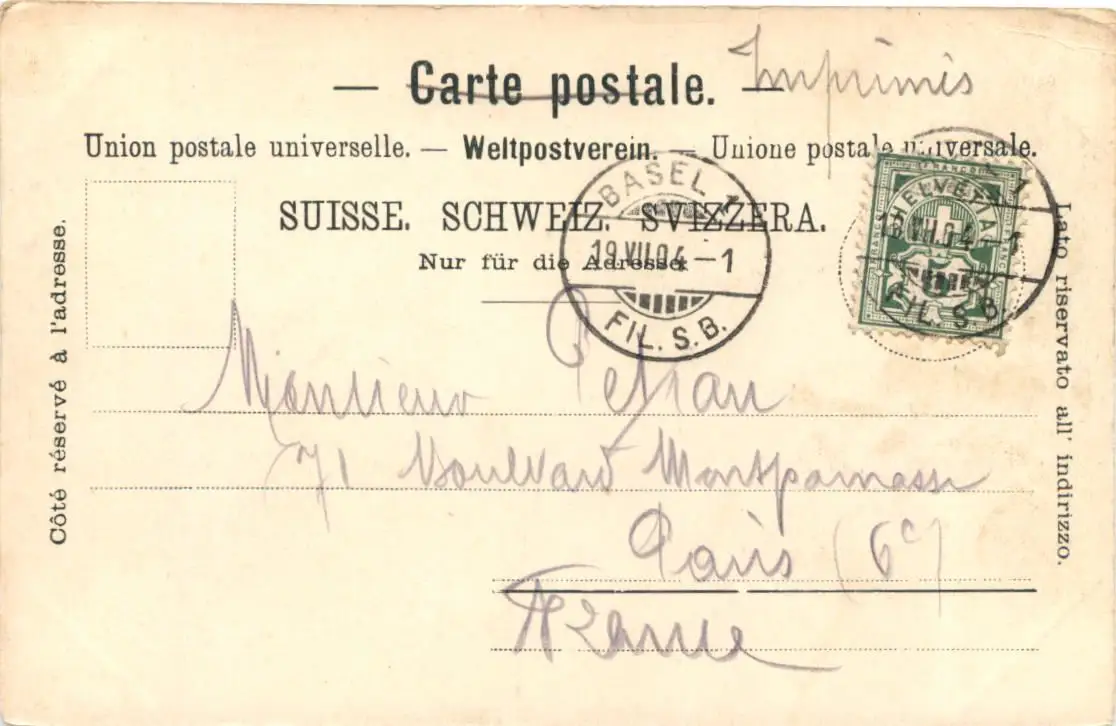 — Carte postale. — Imprimés
Union postale universelle. — Weltpostverein. — Unione postale universale.
SUISSE. SCHWEIZ. SVIZZERA.
Nur für die Adresse
Côté réservé à l'adresse.
Lato riservato all' indirizzo.
BASEL 1
19.VII.04–1
FIL. S.B.
HELVETIA
FRANCO
1
19.VII.04–1
FIL. S.B.
Monsieur
71 Boulevard Montparnasse
Paris (6e)
France